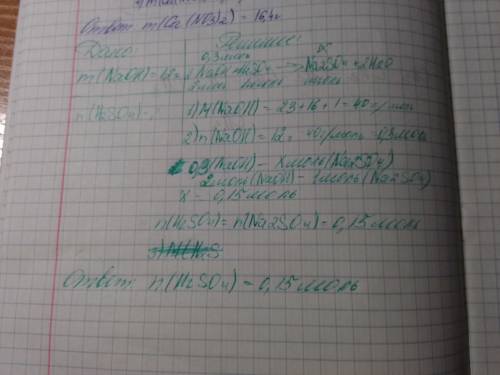 Ответ: m(Ca(NO3)2) = 16,4г
Дано: Решение:
0,3моль x
m(NaOH)=12г 2NaOH+H2SO4 → Na2SO4+2H2O
2моль 1моль 1моль
n(H2SO4)-?
1) M(NaOH) = 23+16+1=40 г/моль
2) n(NaOH) = 12г : 40г/моль = 0,3моль
0,3 (NaOH) - x моль (Na2SO4)
2моль (NaOH) - 1моль (Na2SO4)
x = 0,15 моль
n(H2SO4) = n(Na2SO4) = 0,15 моль
Ответ: n(H2SO4) = 0,15 моль